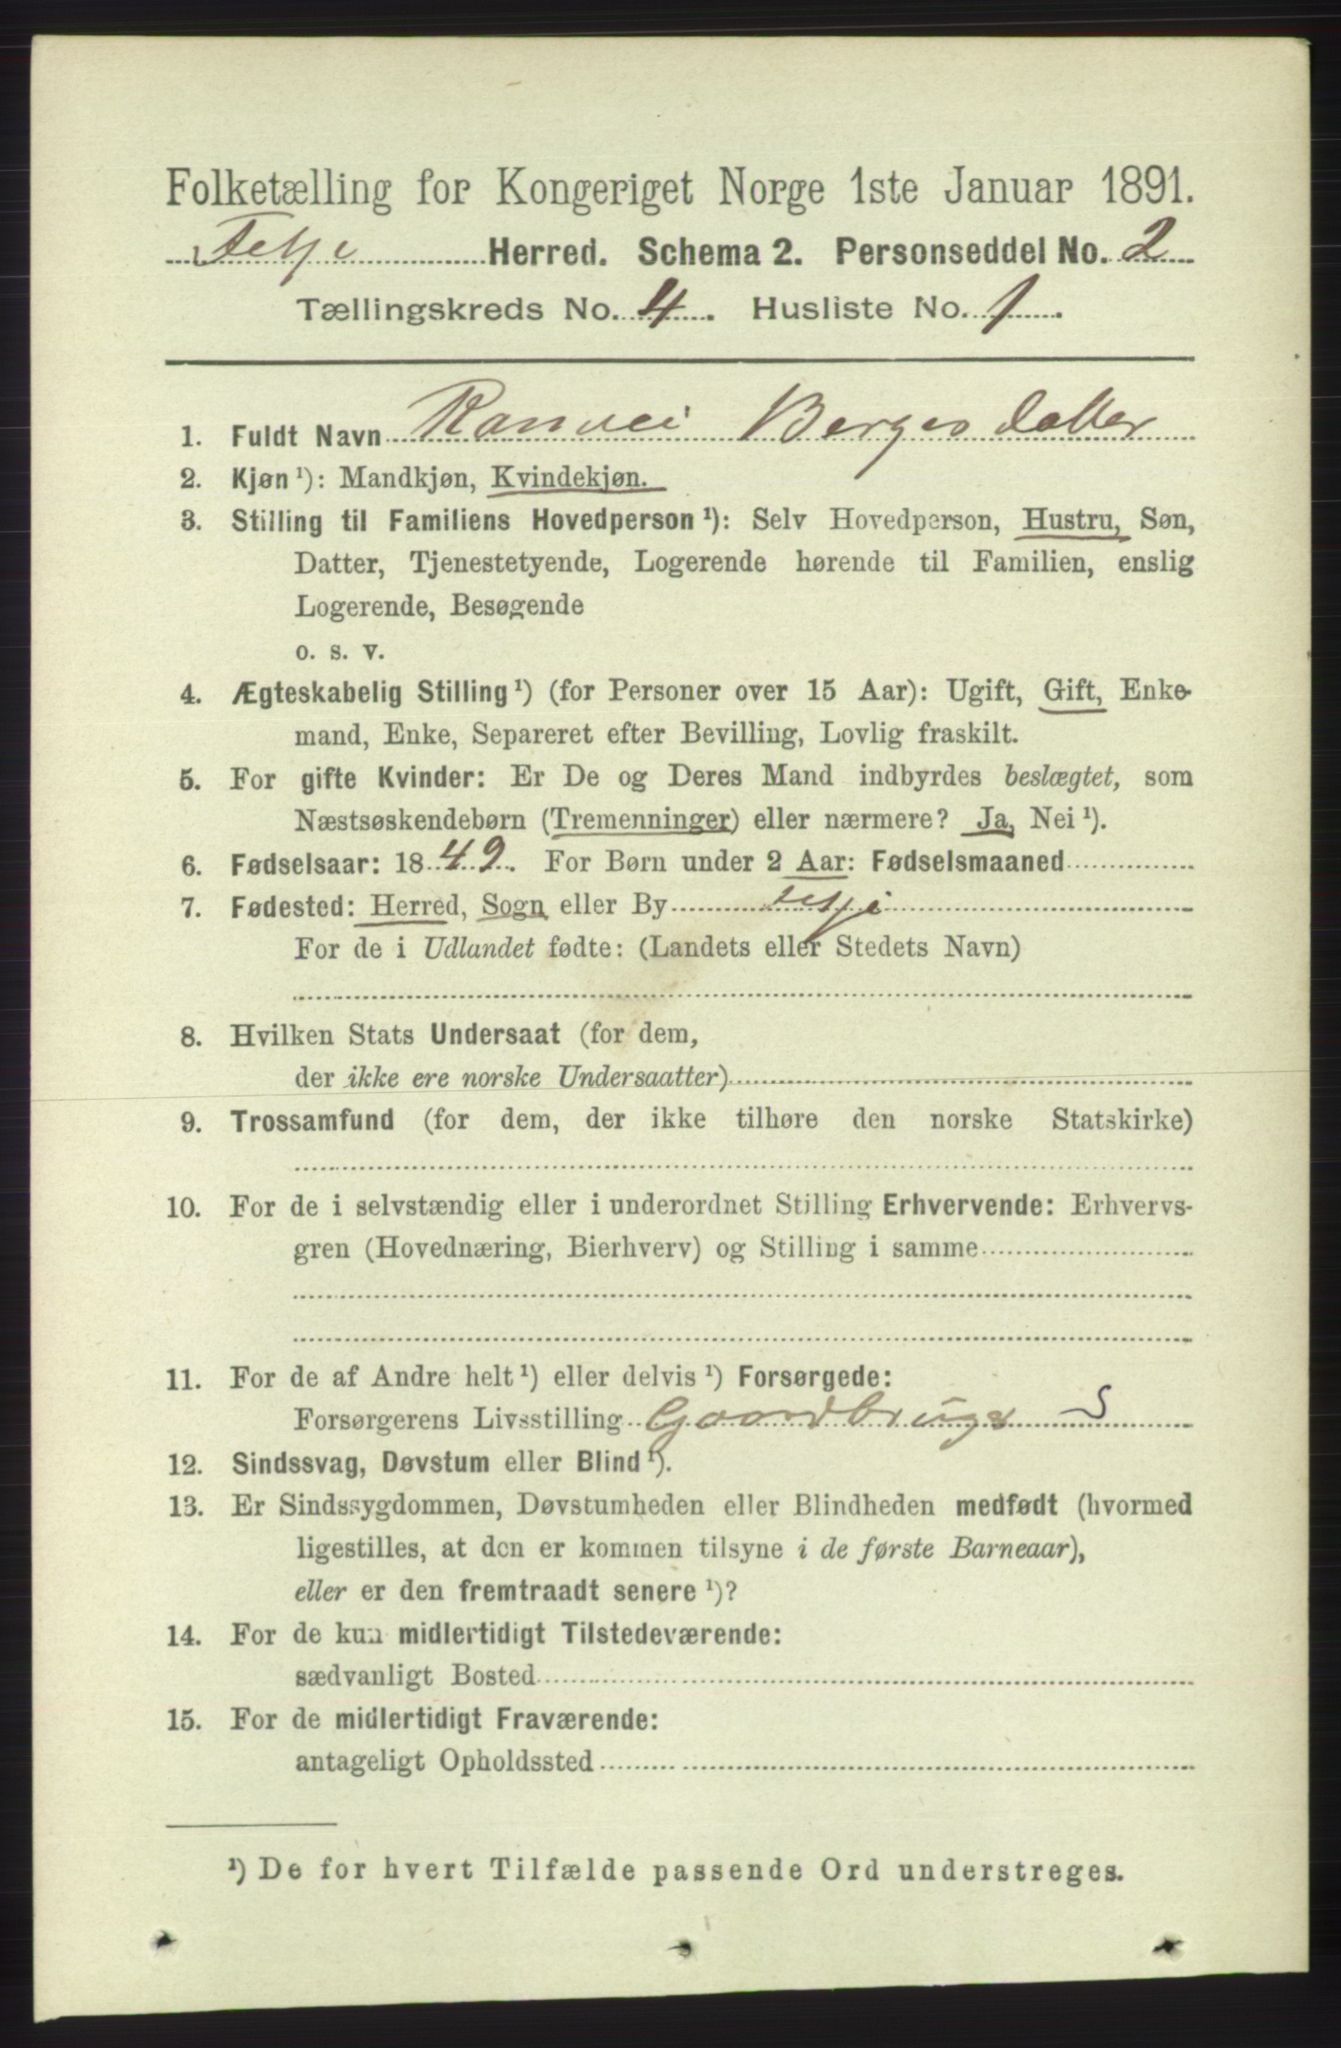 Folketælling for Kongeriget Norge 1ste Januar 1891.
Fetje Herred. Schema 2. Personseddel No. 2
Tællingskreds No. 4. Husliste No. 1.
1. Fuldt Navn Ranvei Berges datter
2. Kjøn ¹): Mandkjøn, Kvindekjøn.
3. Stilling til Familiens Hovedperson ¹): Selv Hovedperson, Hustru, Søn,
Datter, Tjenestetyende, Logerende hørende til Familien, enslig
Logerende, Besøgende
o. s. v.
4. Ægteskabelig Stilling ¹) (for Personer over 15 Aar): Ugift, Gift, Enke-
mand, Enke, Separeret efter Bevilling, Lovlig fraskilt.
5. For gifte Kvinder: Er De og Deres Mand indbyrdes beslægtet, som
Næstsøskendebørn (Tremenninger) eller nærmere? Ja, Nei ¹).
6. Fødselsaar: 1849. For Børn under 2 Aar: Fødselsmaaned
7. Fødested: Herred, Sogn eller By
For de i Udlandet fødte: (Landets eller Stedets Navn)
8. Hvilken Stats Undersaat (for dem,
der ikke ere norske Undersaatter)
9. Trossamfund (for dem, der ikke tilhøre den norske Statskirke)
10. For de i selvstændig eller i underordnet Stilling Erhvervende: Erhvervs-
gren (Hovednæring, Bierhverv) og Stilling i samme
11. For de af Andre helt ¹) eller delvis ¹) Forsørgede:
Forsørgerens Livsstilling Gaardbruger S
12. Sindssvag, Døvstum eller Blind ¹).
13. Er Sindssygdommen, Døvstumheden eller Blindheden medfødt (hvormed
ligestilles, at den er kommen tilsyne i de første Barneaar),
eller er den fremtraadt senere ¹)?
14. For de kun midlertidigt Tilstedeværende:
sædvanligt Bosted
15. For de midlertidigt Fraværende:
antageligt Opholdssted
¹) De for hvert Tilfælde passende Ord understreges.